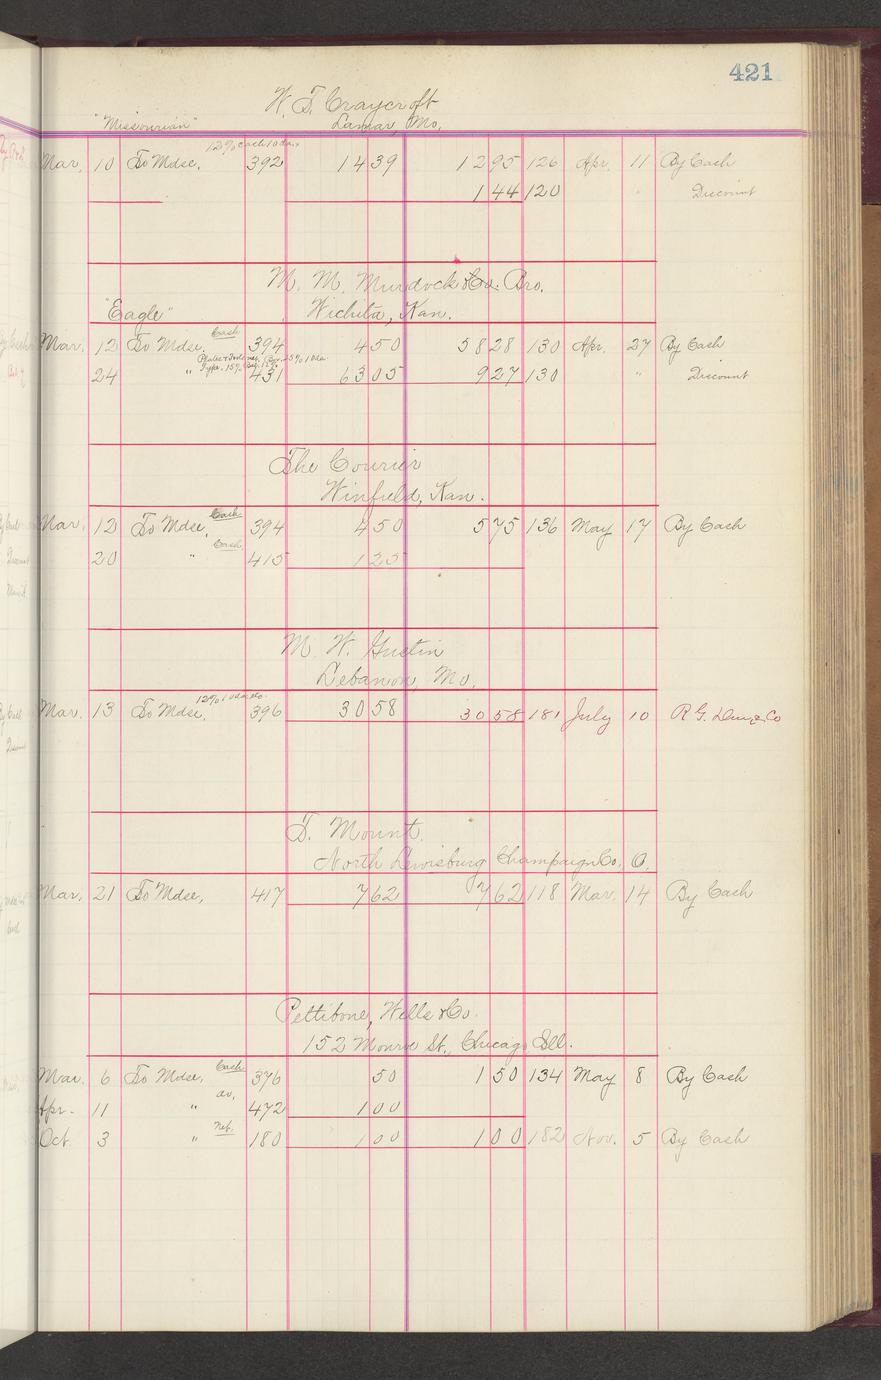 421
W. T. Craycroft
"Missourian" Lamar, Mo.
12% cash 10 da.
Mar. 10 To Mdse. 392 14 39 12 95 126 Apr. 11 By Cash
1 44 120 " Discount
M. M. Murdock & Bro.
"Eagle" Wichita, Kan.
Cash
Mar. 12 To Mdse. 394 4 50 58 28 130 Apr. 27 By Cash
24 " 431 63 05 9 27 130 " Discount
The Courier
Winfield, Kan.
Cash
Mar. 12 To Mdse. 394 4 50 5 75 136 May 17 By Cash
Cash
20 " 415 1 25
M. W. Gustin
Lebanon, Mo.
Mar. 13 To Mdse. 396 30 58 30 58 181 July 10 R. G. Dun & Co
T. Mount.
North Lewisburg Champaign Co. O.
Mar. 21 To Mdse, 417 7 62 7 62 118 Mar. 14 By Cash
Pettibone, Wells & Co.
152 Monroe St., Chicago Ill.
Cash
Mar. 6 To Mdse. 376 50 1 50 134 May 8 By Cash
Apr. 11 " 472 1 00
Net.
Oct. 3 " 180 1 00 1 00 182 Nov. 5 By Cash